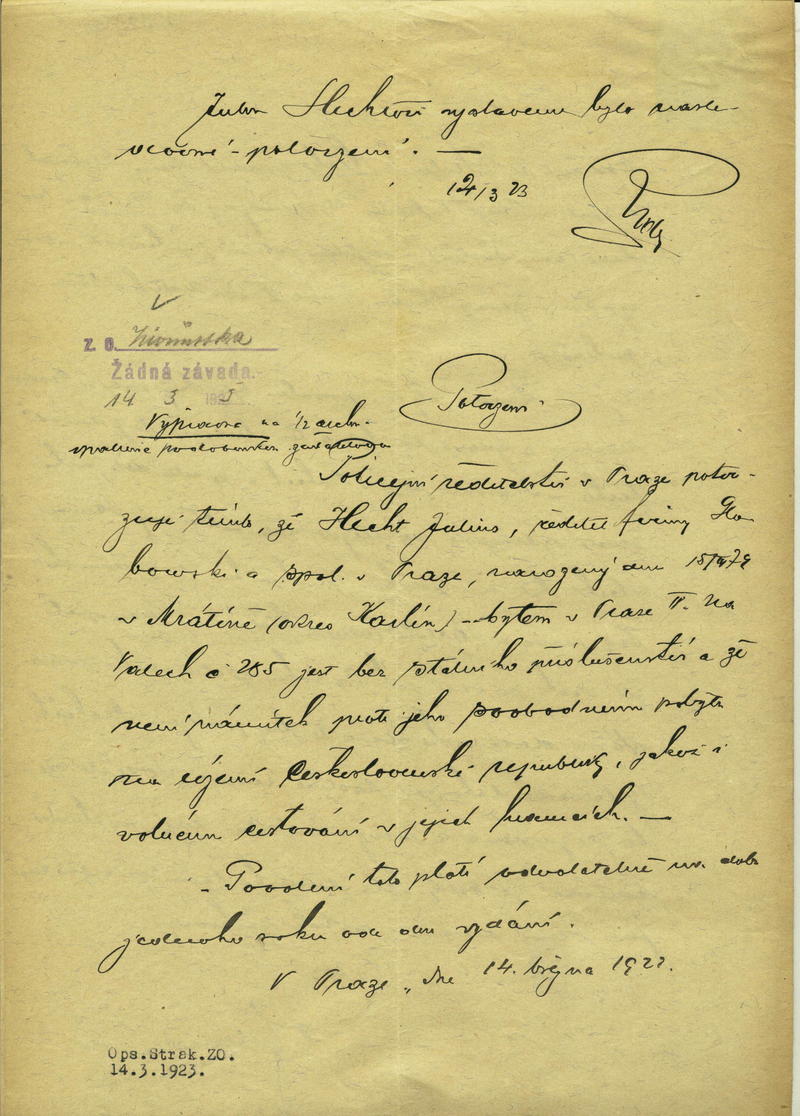 Juliu Hechtovi vystaveno bylo násle-
dovné potvrzení. —
14/3 23
Z. O.
Žádná závada.
14 3
Vypraveno na 1/2 arch.
Potvrzení
Policejní ředitelství v Praze potvr-
zuje tímto, že Hecht Julius, ředitel firmy Gla-
bowski a spol. v Praze, narozený dne
v Mrátíně (okres Karlín) – bytem v Praze II. Na
Valech č 285 jest bez stálého příslušenství a že
není námitek proti jeho svobodnému pobytu
na území Československé republiky, jakož i
volnému cestování v jejích hranicích. —
- Povolení toto platí odvolatelně na dobu
jednoho roku ode dne vydání.
V Praze, dne 14. března 1923.
Ops.Strak.ZO.
14.3.1923.